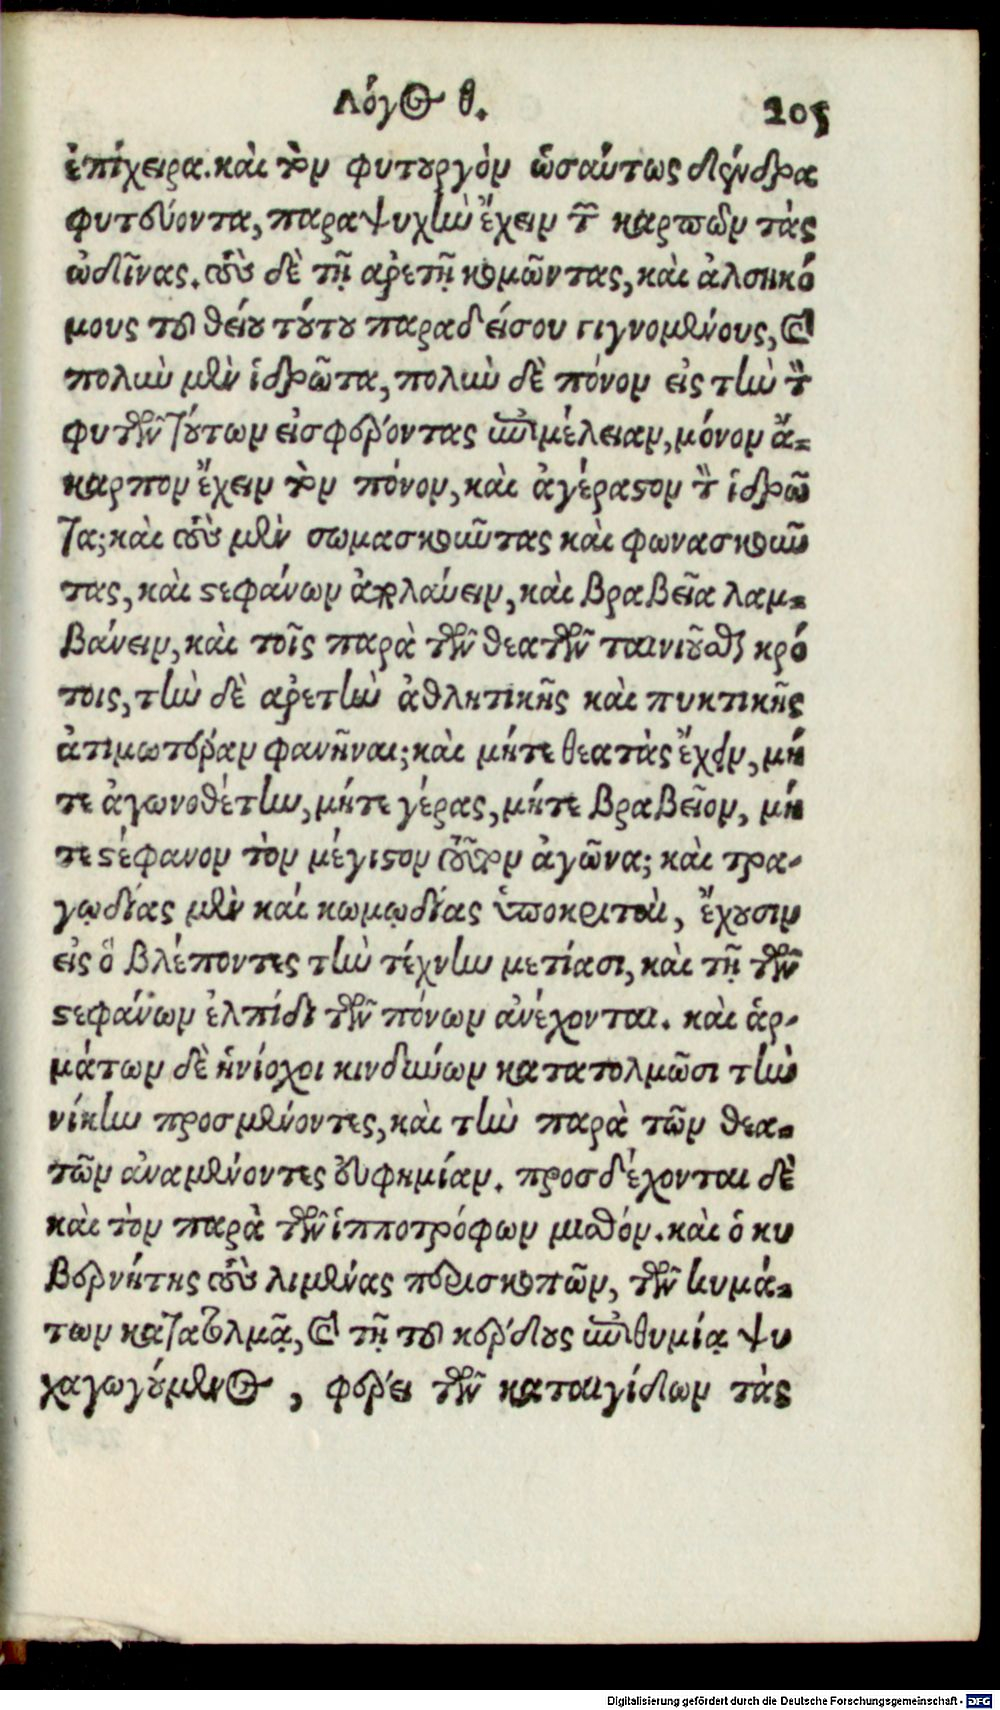 Λόγος θ. 205
ἐπίχειρα. καὶ τὸν φυτουργὸν ὡσαύτως δένδρα
φυτεύοντα, παραψυχὴν ἔχειν τ͂ καρπῶν τὰς
ὠδῖνας. τοὺς δὲ τῇ ἀρετῇ κομῶντας, καὶ ἀλσηκό
μους τοῦ θείου τούτου παραδείσου γιγνομένους, καὶ
πολὺν μὲν ἱδρῶτα, πολὺν δὲ πόνον εἰς τὴν τ͂
φυτῶν τούτων εἰσφέροντας ἐπιμέλειαν, μόνον ἄ-
καρπον ἔχειν τὸν πόνον, καὶ ἀγέραστον τ̀ ἱδρῶ
τα; καὶ τοὺς μὲν σωμασκοῦντας καὶ φωνασκοῦν
τας, καὶ στεφάνων ἀπολαύειν, καὶ βραβεῖα λαμ-
βάνειν, καὶ τοῖς παρὰ τῶν θεατῶν ταινιοῦσθαι κρό
τοις, τὴν δὲ ἀρετὴν ἀθλητικῆς καὶ πυκτικῆς
ἀτιμωτέραν φανῆναι; καὶ μήτε θεατὰς ἔχειν, μή
τε ἀγωνοθέτην, μήτε γέρας, μήτε βραβεῖον, μή
τε στέφανον τὸν μέγιστον τοῦτον ἀγῶνα; καὶ τρα-
γῳδίας μὲν καὶ κωμῳδίας ὑποκριταὶ, ἔχουσιν
εἰς ὃ βλέποντες τὴν τέχνην μετίασι, καὶ τῇ τῶν
στεφάνων ἐλπίδι τῶν πόνων ἀνέχονται. καὶ ἁρ-
μάτων δὲ ἡνίοχοι κινδύνων κατατολμῶσι τὴν
νίκην προσμένοντες, καὶ τὴν παρὰ τῶν θεα-
τῶν ἀναμένοντες εὐφημίαν. προσδέχονται δὲ
καὶ τὸν παρὰ τῶν ἱπποτρόφων μισθόν. καὶ ὁ κυ
βερνήτης τοὺς λιμένας περισκοπῶν, τῶν κυμά-
των κατατολμᾷ, καὶ τῇ τοῦ κέρδους ἐπιθυμίᾳ ψυ
χαγωγούμενος, φέρει τῶν καταιγίδων τὰς
Digitalisierung gefördert durch die Deutsche Forschungsgemeinschaft - DFG